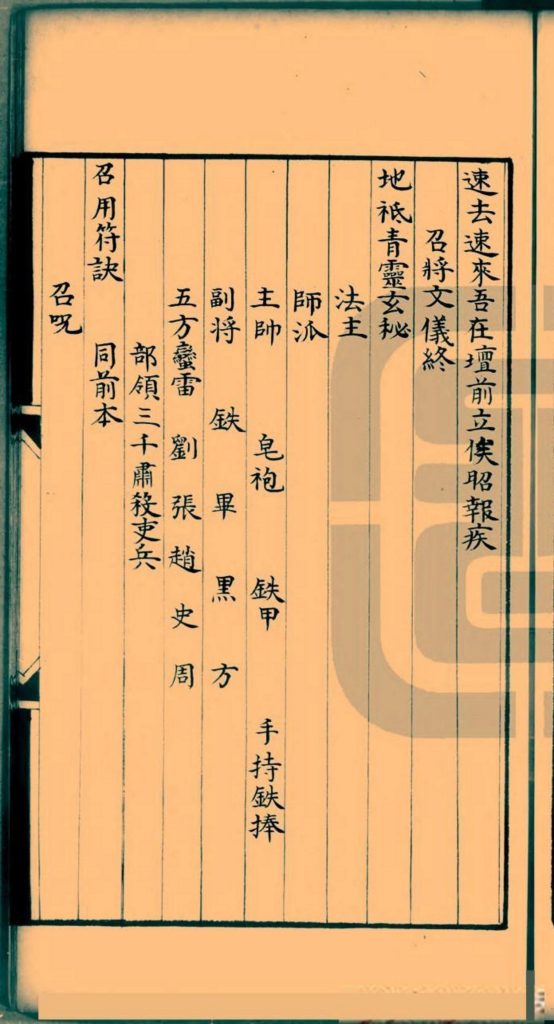 速去速來吾在壇前立俟昭報疾
召將文儀終
地祇青靈玄秘
法主
師派
主帥 皂袍 鉄甲 手持鉄捧
副将 鉄 畢 黑 方
五方蠻雷 劉 張 趙 史 周
部領三千肅殺吏兵
召用符訣 同前本
召呪